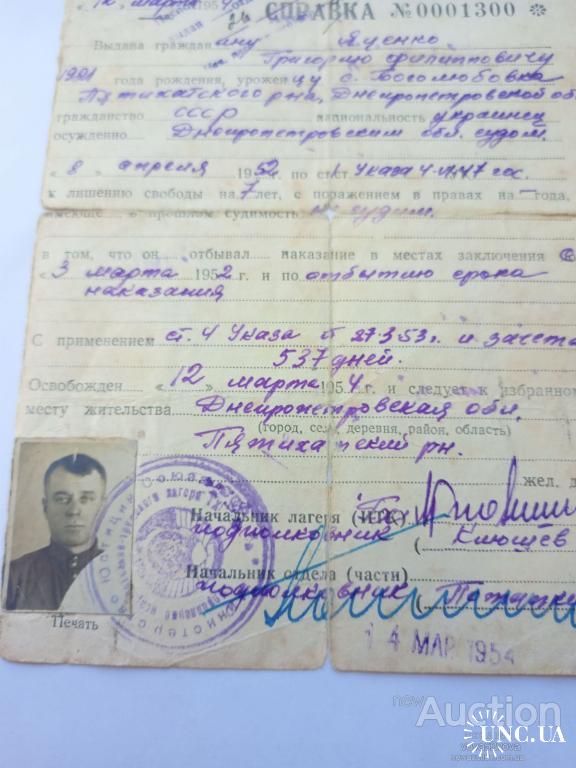 12 марта 195
СПРАВКА №0001300
Выдана граждан ину Яценко
Григорию Филипповичу
1921 года рождения, урожен цу с. Боголюбовка
Пятихатского р-на, Днепропетровской об
гражданство СССР национальность украинец
осуждено Днепропетровским обл. судом.
« 8 » апреля 1952 по ст.ст. 1 Указа 4-VI-47 гос.
к лишению свободы на 7 лет, с поражением в правах на — года,
имеюще в прошлом судимость не судим.
в том, что он отбывал наказание в местах заключения с
« 3 марта 1952 г. и по отбытию срока
наказания
С применением ст. 4 Указа от 27-3-53г. и зачета
537 дней.
Освобожден « 12 » марта 1954 г. и следует к избранном
месту жительства Днепропетровская обл.
(город, село, деревня, район, область)
Пятихатский рн.
жел. д
Начальник лагеря (ИТК)
подполковник ( Клюшев
Начальник отдела (части)
подполковник (
Печать
14 МАР 1954
newauction
Auction
UNC.UA